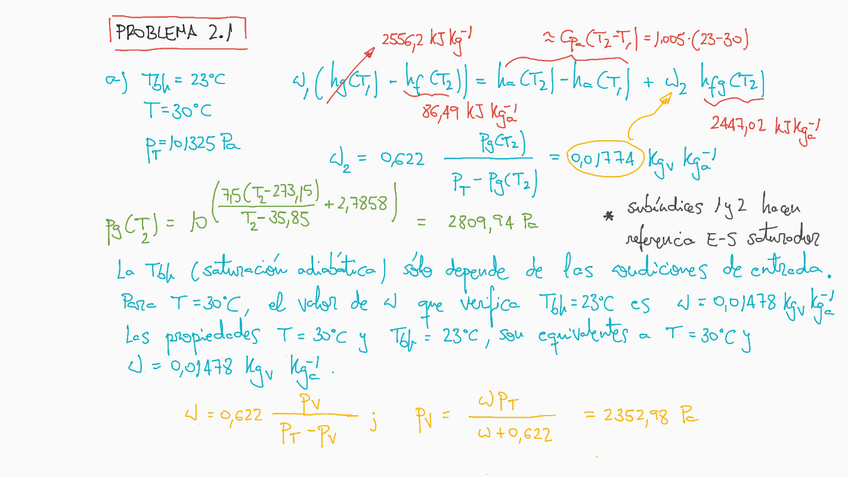 PROBLEMA 2.1
2556,2 kJ kg⁻¹
≈ Cpa(T2-T1) = 1,005·(23-30)
a) Tbh = 23°C
ω1 (hg(T1) - hf(T2)) = ha(T2) - ha(T1) + ω2 hfg(T2)
T = 30°C
86,49 kJ kga⁻¹
2447,02 kJ kga⁻¹
PT = 101325 Pa
ω2 = 0,622 Pg(T2) / (PT - Pg(T2)) = 0,01774 kgv kga⁻¹
pg(T2) = 10^(7,5(T2-273,15) / (T2-35,85) + 2,7858) = 2809,94 Pa
* subíndices 1 y 2 hacen
referencia E-S saturador
La Tbh (saturación adiabática) sólo depende de las condiciones de entrada.
Para T=30°C, el valor de ω que verifica Tbh=23°C es ω=0,01478 kgv kga⁻¹
Las propiedades T = 30°C y Tbh = 23°C, son equivalentes a T = 30°C y
ω = 0,01478 kgv kga⁻¹.
ω = 0,622 PV / (PT - PV) ; PV = ωPT / (ω + 0,622) = 2352,98 Pa